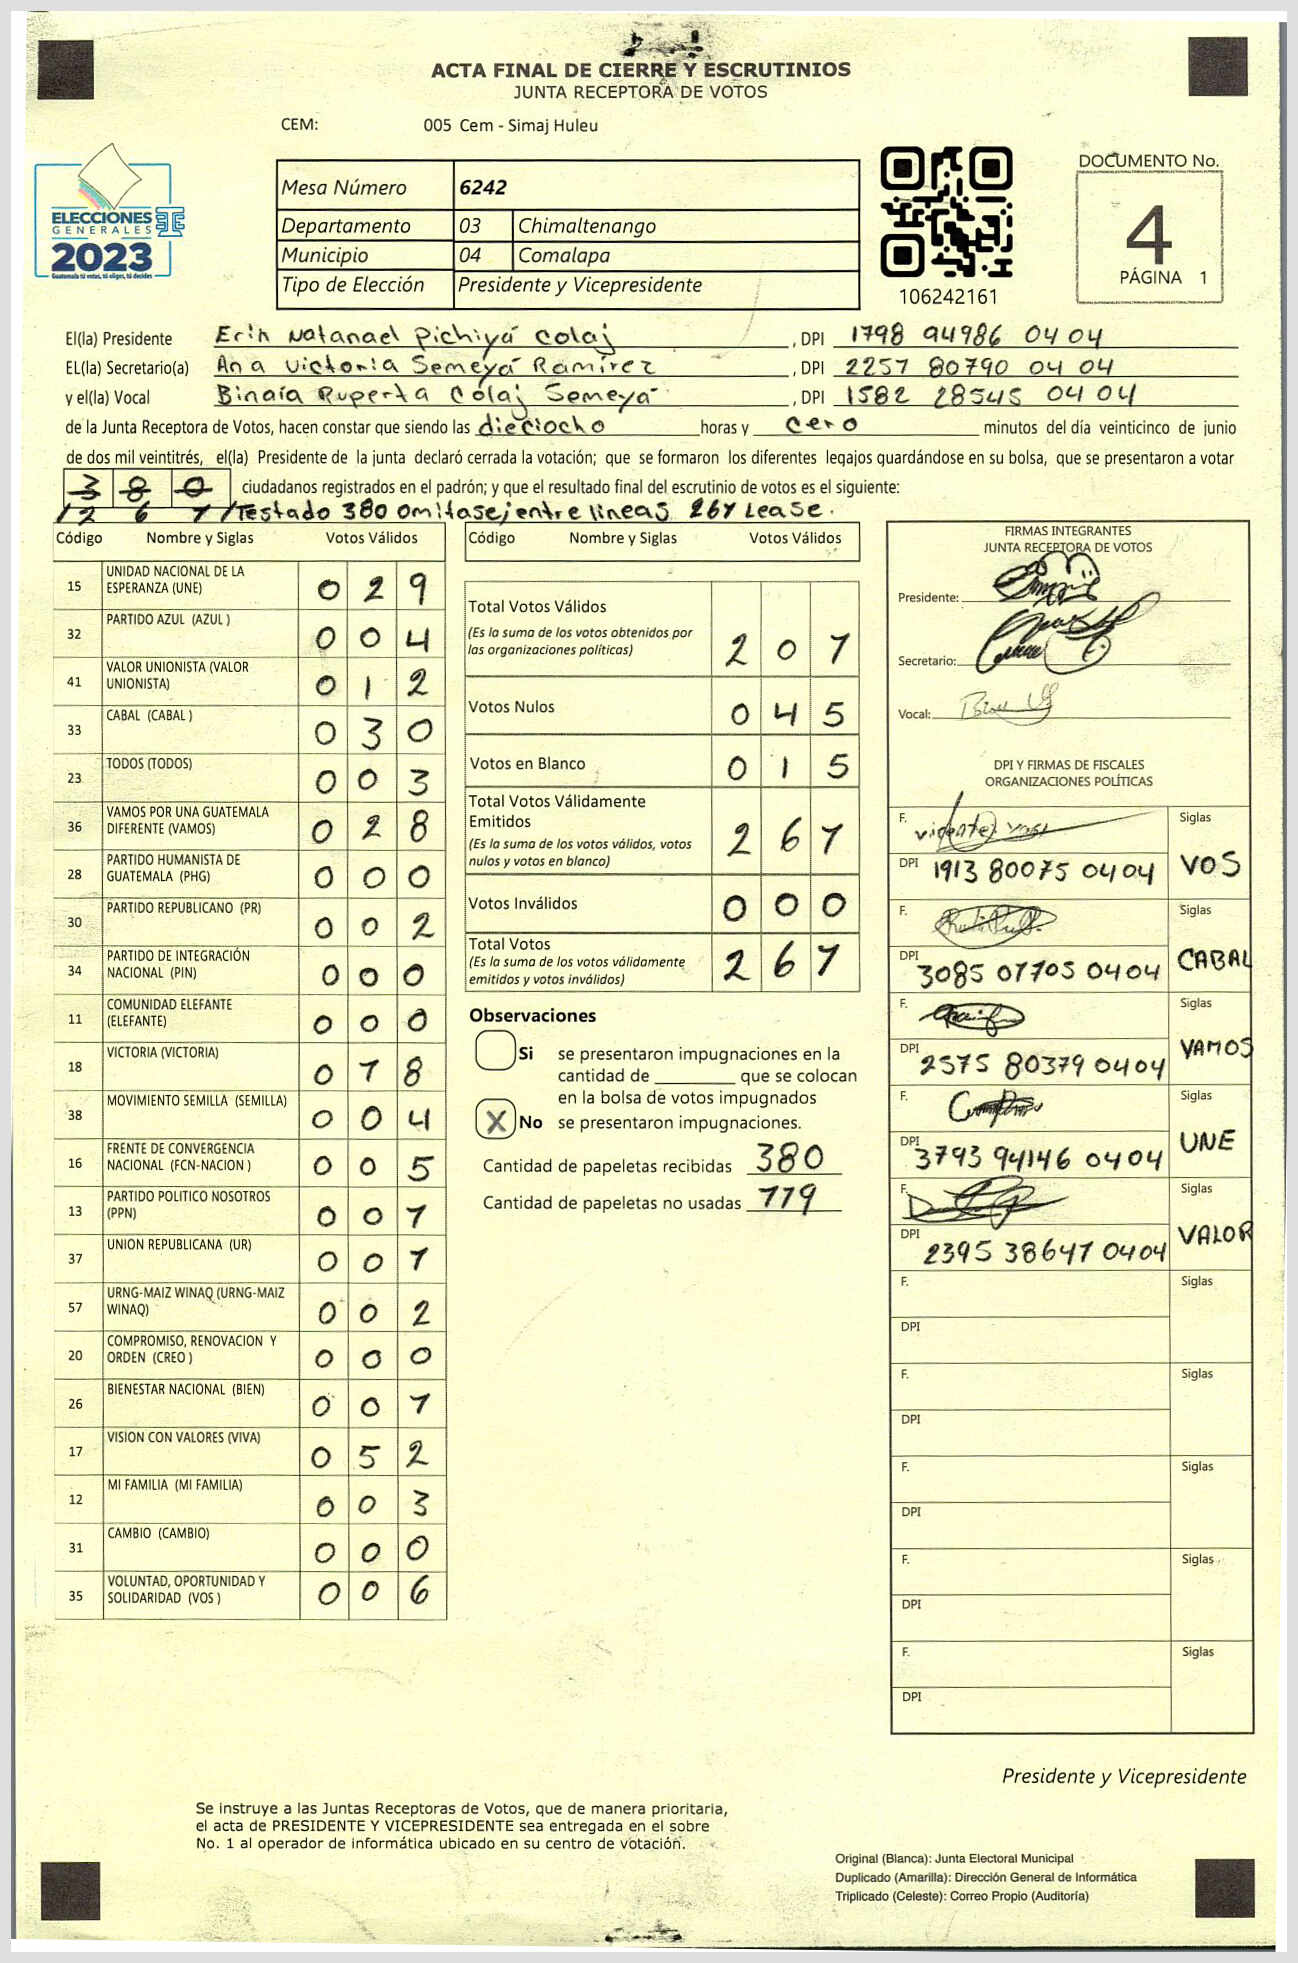 ACTA FINAL DE CIERRE Y ESCRUTINIOS
JUNTA RECEPTORA DE VOTOS
CEM: 005 Cem - Simaj Huleu
ELECCIONES
GENERALES
2023
Guatemala tú votas, tú eliges, tú decides
Mesa Número 6242
Departamento 03 Chimaltenango
Municipio 04 Comalapa
Tipo de Elección Presidente y Vicepresidente
106242161
DOCUMENTO No.
4
PÁGINA 1
El(la) Presidente Erin Natanael Pichiyá Colaj, DPI 1798 94986 04 04
EL(la) Secretario(a) Ana Victoria Semeyá Ramírez, DPI 2257 80790 04 04
y el(la) Vocal Binaía Ruperta Colaj Semeyá, DPI 1582 28545 04 04
de la Junta Receptora de Votos, hacen constar que siendo las dieciocho horas y cero minutos del día veinticinco de junio
de dos mil veintitrés, el(la) Presidente de la junta declaró cerrada la votación; que se formaron los diferentes legajos guardándose en su bolsa, que se presentaron a votar
3 8 0 ciudadanos registrados en el padrón; y que el resultado final del escrutinio de votos es el siguiente:
/2 6 7/Testado 380 omitase; entre lineas 267 Lease.
Código Nombre y Siglas Votos Válidos
15 UNIDAD NACIONAL DE LA ESPERANZA (UNE) 0 2 9
32 PARTIDO AZUL (AZUL ) 0 0 4
41 VALOR UNIONISTA (VALOR UNIONISTA) 0 1 2
33 CABAL (CABAL ) 0 3 0
23 TODOS (TODOS) 0 0 3
36 VAMOS POR UNA GUATEMALA DIFERENTE (VAMOS) 0 2 8
28 PARTIDO HUMANISTA DE GUATEMALA (PHG) 0 0 0
30 PARTIDO REPUBLICANO (PR) 0 0 2
34 PARTIDO DE INTEGRACIÓN NACIONAL (PIN) 0 0 0
11 COMUNIDAD ELEFANTE (ELEFANTE) 0 0 0
18 VICTORIA (VICTORIA) 0 1 8
38 MOVIMIENTO SEMILLA (SEMILLA) 0 0 4
16 FRENTE DE CONVERGENCIA NACIONAL (FCN-NACION ) 0 0 5
13 PARTIDO POLITICO NOSOTROS (PPN) 0 0 7
37 UNION REPUBLICANA (UR) 0 0 1
57 URNG-MAIZ WINAQ (URNG-MAIZ WINAQ) 0 0 2
20 COMPROMISO, RENOVACION Y ORDEN (CREO ) 0 0 0
26 BIENESTAR NACIONAL (BIEN) 0 0 1
17 VISION CON VALORES (VIVA) 0 5 2
12 MI FAMILIA (MI FAMILIA) 0 0 3
31 CAMBIO (CAMBIO) 0 0 0
35 VOLUNTAD, OPORTUNIDAD Y SOLIDARIDAD (VOS ) 0 0 6
Código Nombre y Siglas Votos Válidos
Total Votos Válidos
(Es la suma de los votos obtenidos por las organizaciones políticas) 2 0 7
Votos Nulos 0 4 5
Votos en Blanco 0 1 5
Total Votos Válidamente Emitidos
(Es la suma de los votos válidos, votos nulos y votos en blanco) 2 6 7
Votos Inválidos 0 0 0
Total Votos
(Es la suma de los votos válidamente emitidos y votos inválidos) 2 6 7
Observaciones
Si se presentaron impugnaciones en la
cantidad de ________ que se colocan
en la bolsa de votos impugnados
X No se presentaron impugnaciones.
Cantidad de papeletas recibidas 380
Cantidad de papeletas no usadas 119
FIRMAS INTEGRANTES
JUNTA RECEPTORA DE VOTOS
Presidente:
Secretario:
Vocal:
DPI Y FIRMAS DE FISCALES
ORGANIZACIONES POLÍTICAS
F. Siglas
DPI 1913 80075 0404 VOS
F. Siglas
DPI 3085 07705 0404 CABAL
F. Siglas
DPI 2575 80379 0404 VAMOS
F. Siglas
DPI 3793 94146 0404 UNE
F. Siglas
DPI 2395 38647 0404 VALOR
F. Siglas
DPI
F. Siglas
DPI
F. Siglas
DPI
F. Siglas
DPI
F. Siglas
DPI
Presidente y Vicepresidente
Se instruye a las Juntas Receptoras de Votos, que de manera prioritaria,
el acta de PRESIDENTE Y VICEPRESIDENTE sea entregada en el sobre
No. 1 al operador de informática ubicado en su centro de votación.
Original (Blanca): Junta Electoral Municipal
Duplicado (Amarilla): Dirección General de Informática
Triplicado (Celeste): Correo Propio (Auditoría)